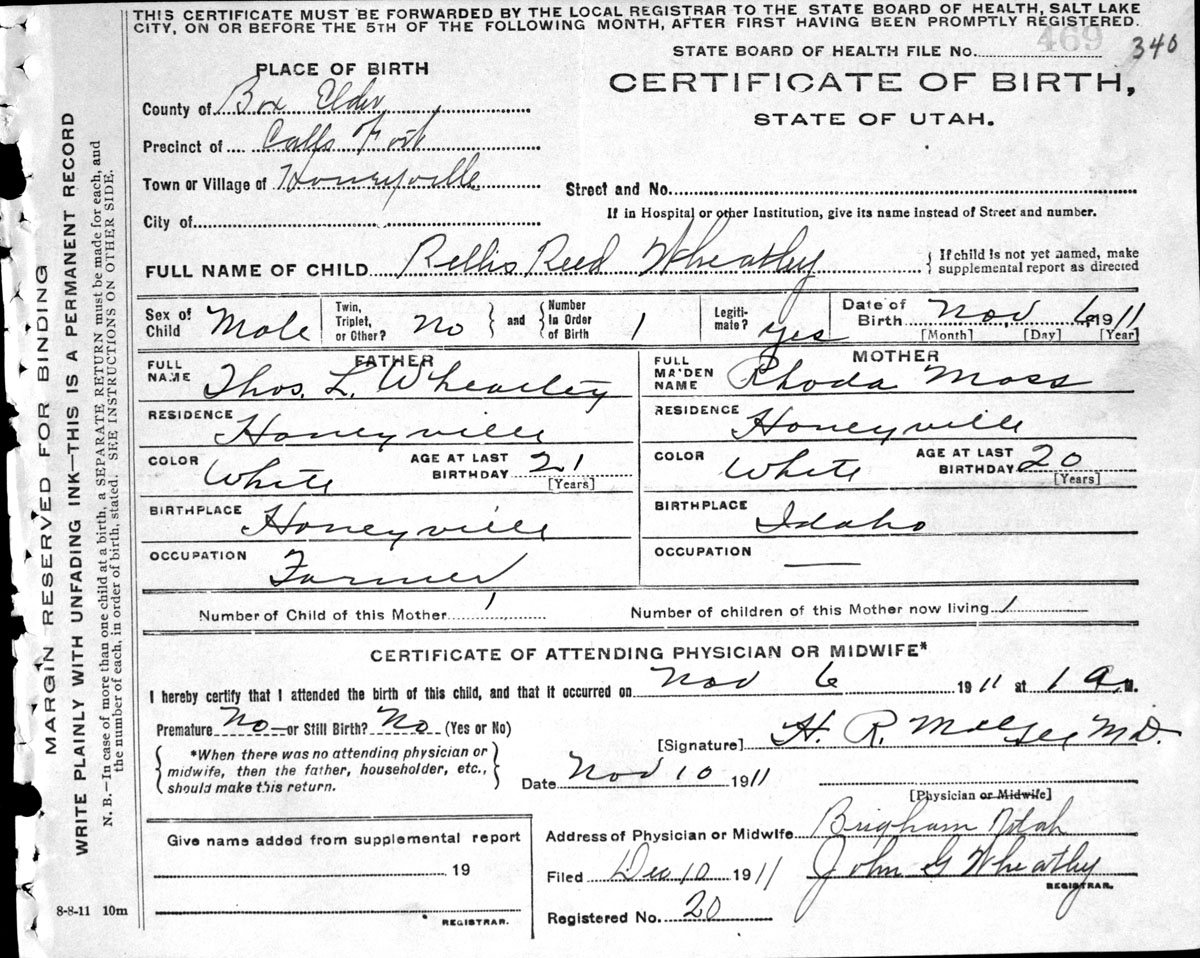 THIS CERTIFICATE MUST BE FORWARDED BY THE LOCAL REGISTRAR TO THE STATE BOARD OF HEALTH, SALT LAKE
CITY, ON OR BEFORE THE 5TH OF THE FOLLOWING MONTH, AFTER FIRST HAVING BEEN PROMPTLY REGISTERED.
STATE BOARD OF HEALTH FILE No. 469 340
PLACE OF BIRTH
CERTIFICATE OF BIRTH,
STATE OF UTAH.
County of Box Elder
Precinct of Calls Fort
Town or Village of Honeyville
Street and No.
City of
If in Hospital or other Institution, give its name instead of Street and number.
FULL NAME OF CHILD Rellis Reed Wheatley
If child is not yet named, make
supplemental report as directed
Sex of Child Male
Twin, Triplet, or Other? No
and
Number In Order of Birth 1
Legiti-mate? yes
Date of Birth Nov 6 1911
[Month] [Day] [Year]
FATHER
FULL NAME Thos. L. Whearley
RESIDENCE Honeyville
COLOR White
AGE AT LAST BIRTHDAY 21
[Years]
BIRTHPLACE Honeyville
OCCUPATION Farmer
MOTHER
FULL MAIDEN NAME Rhoda Moss
RESIDENCE Honeyville
COLOR White
AGE AT LAST BIRTHDAY 20
[Years]
BIRTHPLACE Idaho
OCCUPATION —
Number of Child of this Mother 1
Number of children of this Mother now living 1
CERTIFICATE OF ATTENDING PHYSICIAN OR MIDWIFE*
I hereby certify that I attended the birth of this child, and that it occurred on Nov 6 1911 at 1 a M.
Premature No or Still Birth? No (Yes or No)
*When there was no attending physician or
midwife, then the father, householder, etc.,
should make this return.
[Signature] H. R. M.D.
Date Nov 10 1911
[Physician or Midwife]
Give name added from supplemental report
19
REGISTRAR.
Address of Physician or Midwife Brigham Utah
Filed Dec 10 1911 John G Wheatley
REGISTRAR.
Registered No. 20
8-8-11 10m
MARGIN RESERVED FOR BINDING
WRITE PLAINLY WITH UNFADING INK—THIS IS A PERMANENT RECORD
N. B.—In case of more than one child at a birth, a SEPARATE RETURN must be made for each, and
the number of each, in order of birth, stated. SEE INSTRUCTIONS ON OTHER SIDE.